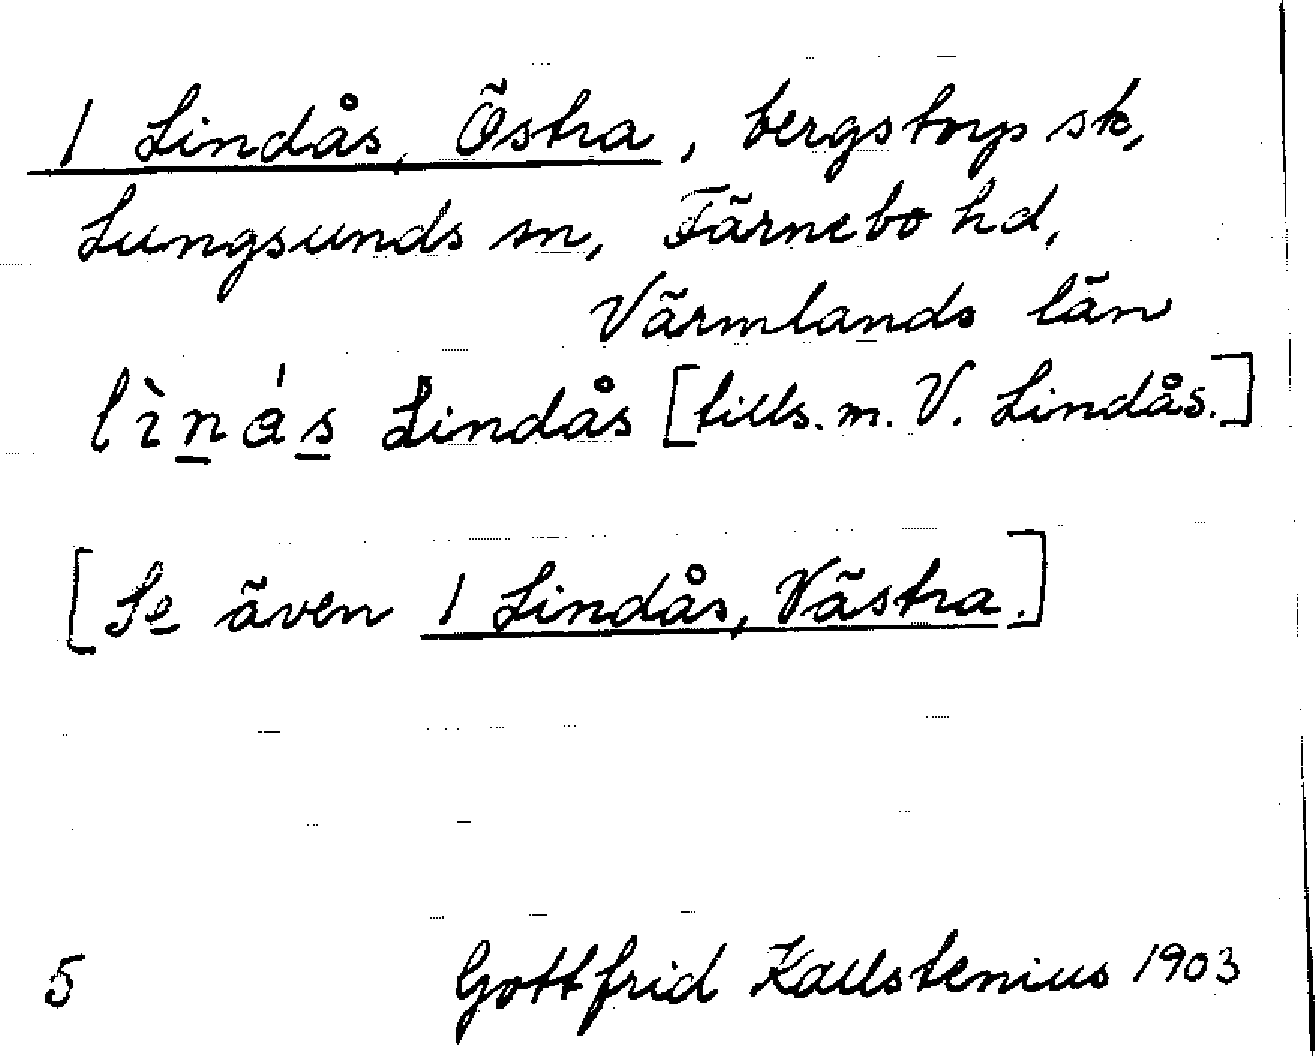 1 Lindås, Östra, bergstorp sk,
Lungsunds sn, Färnebo hd,
Värmlands län
lìnás Lindås [tills. m. V. Lindås.]
[Se även 1 Lindås, Västra.]
5 Gottfrid Kallstenius 1903